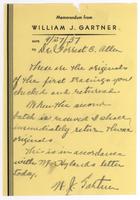 Memorandum from
WILLIAM J. GARTNER
DATE 9/27/37
To Dr. Forrest C. Allen
These are the originals
of the first tracings you
checked and returned.
When the second
batch is received I shall
immediately return those
originals.
This is in accordance
with Mr. Hyland's letter
today.
W. J. Gartner